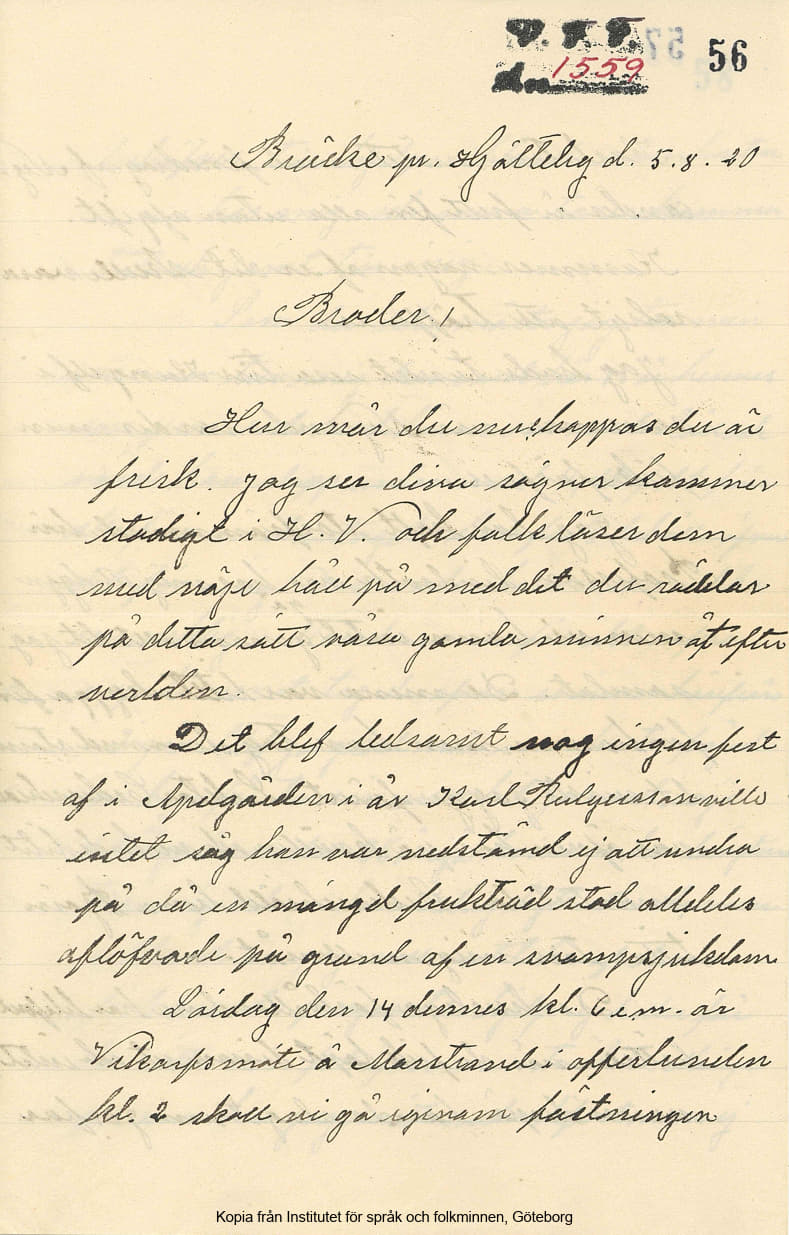 V. F. F.
1559
56
Bräcke pr. Hjälteby d. 5.8.20
Broder!
Hur mår du nu, hoppas du är
frisk. Jag ser dina sägner kommer
stadigt i H. V. och folk läser dem
med nöje håll på med det du räddar
på detta sätt våra gamla minnen åt efter
verlden.
Det blef ledsamt nog ingen fest
af i Apelgården i år Karl ville
intet säg han var nedstämd ej att undra
på då en mängd fruktträd stod alldeles
aflöfvade på grund af en svampsjukdom
Lördag den 14 dennes kl. 6 e.m. är
Vikarfsmöte å Marstrand i offerlunden
kl. 2 skall vi gå igenom fästningen
Kopia från Institutet för språk och folkminnen, Göteborg